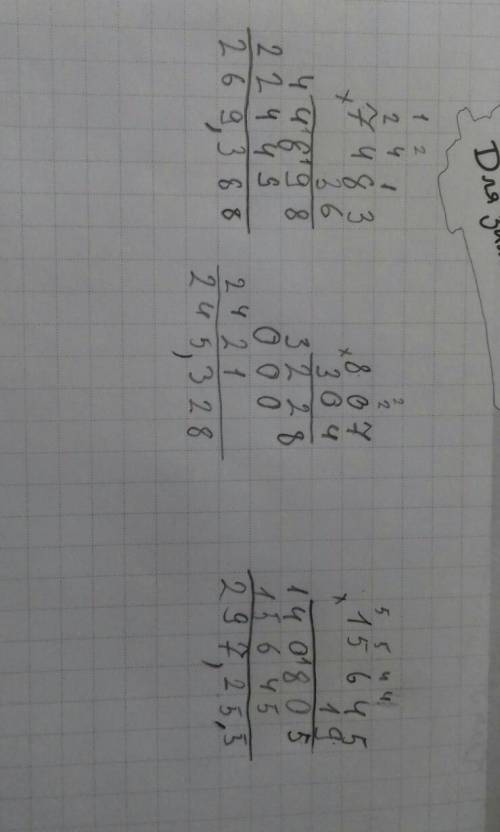 Для
1 2
2 4 1
×7483
36
44898
22449
269,388
2
2
×807
304
3228
000
2421
245,328
5 5 4 4
×15645
19
140805
15645
297,25,5